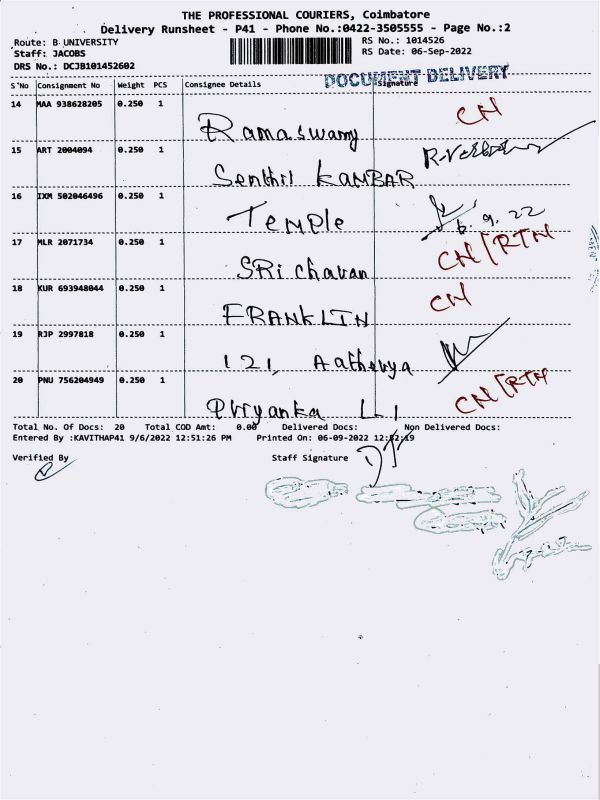 THE PROFESSIONAL COURIERS, Coimbatore
Delivery Runsheet - P41 - Phone No.:0422-3505555 - Page No.:2
Route: B UNIVERSITY
RS No.: 1014526
Staff: JACOBS
RS Date: 06-Sep-2022
DRS No.: DCJB101452602
DOCUMENT DELIVERY
S'No Consignment No Weight PCS Consignee Details Signature
14 MAA 938628205 0.250 1
CN
Ramaswamy
15 ART 2004094 0.250 1
Senthil KAMBAR
16 IXM 502046496 0.250 1
Temple
6.9.22
17 MLR 2071734 0.250 1
CN/RTN
SRi charan
18 KUR 693948044 0.250 1
CN
FRANKLIN
19 RJP 2997818 0.250 1
121, Aathevya
20 PNU 756204949 0.250 1
CN/RTN
Priyanka L I
Total No. Of Docs: 20 Total COD Amt: 0.00 Delivered Docs: Non Delivered Docs:
Entered By :KAVITHAP41 9/6/2022 12:51:26 PM Printed On: 06-09-2022 12:52:19
Verified By Staff Signature